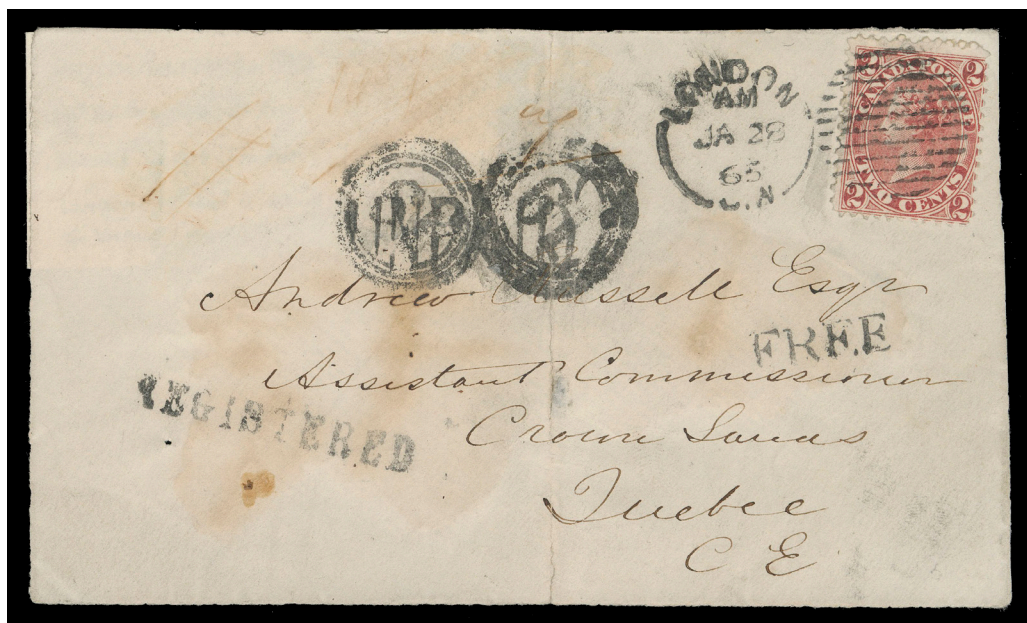 LONDON
AM
JA 28
65
C.W
2 2
CANADA POSTAGE
TWO CENTS
2 2
Andrew Russell Esqr
FREE
Assistant Commissioner
REGISTERED
Crown Lands
Quebec
C E